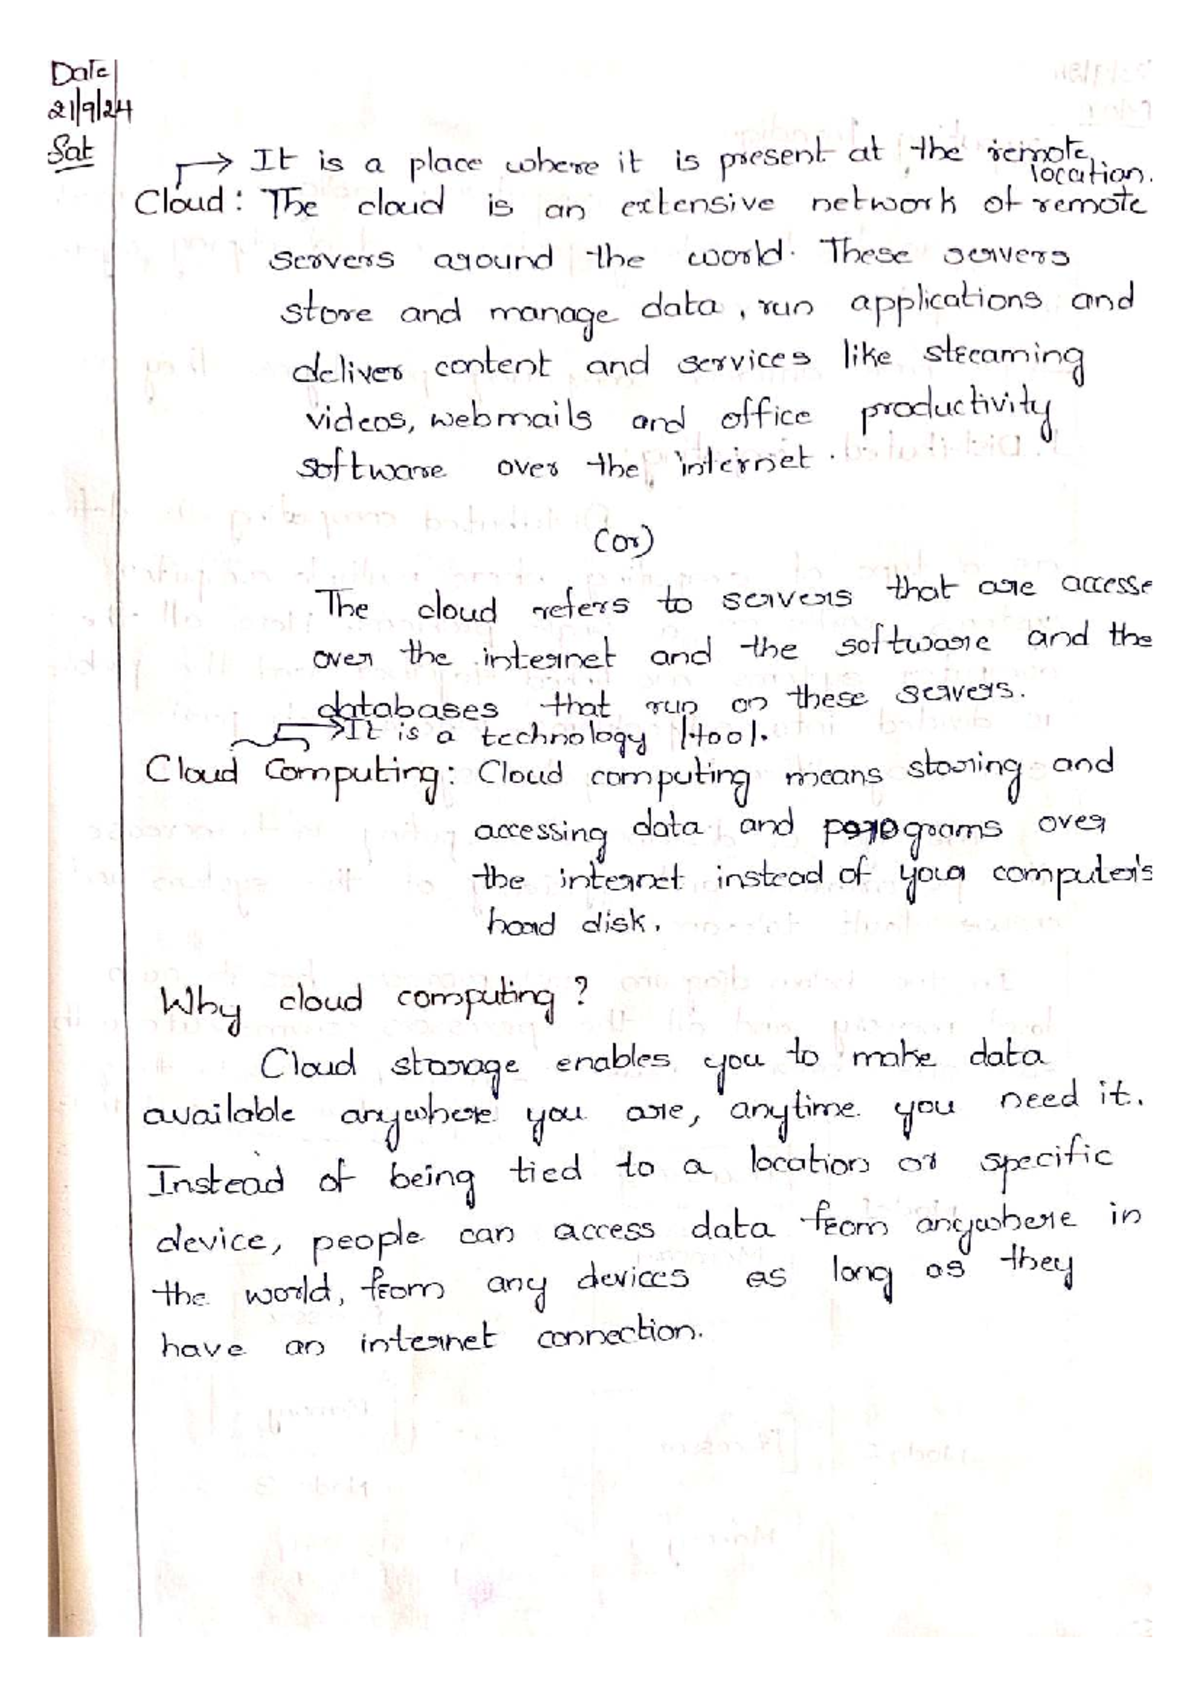 Date
21/9/24
Sat
It is a place where it is present at the remote
location.
Cloud: The cloud is an extensive network of remote
servers around the world. These servers
store and manage data, run applications and
deliver content and services like streaming
videos, webmails and office productivity
software over the internet.
(or)
The cloud refers to servers that are accesse
over the internet and the software and the
databases that run on these servers.
It is a technology /tool.
Cloud Computing: Cloud computing means storing and
accessing data and programs over
the internet instead of your computer's
hard disk.
Why cloud computing?
Cloud storage enables you to make data
available anywhere you are, anytime you need it.
Instead of being tied to a location or specific
device, people can access data from anywhere in
the world, from any devices as long as they
have an internet connection.